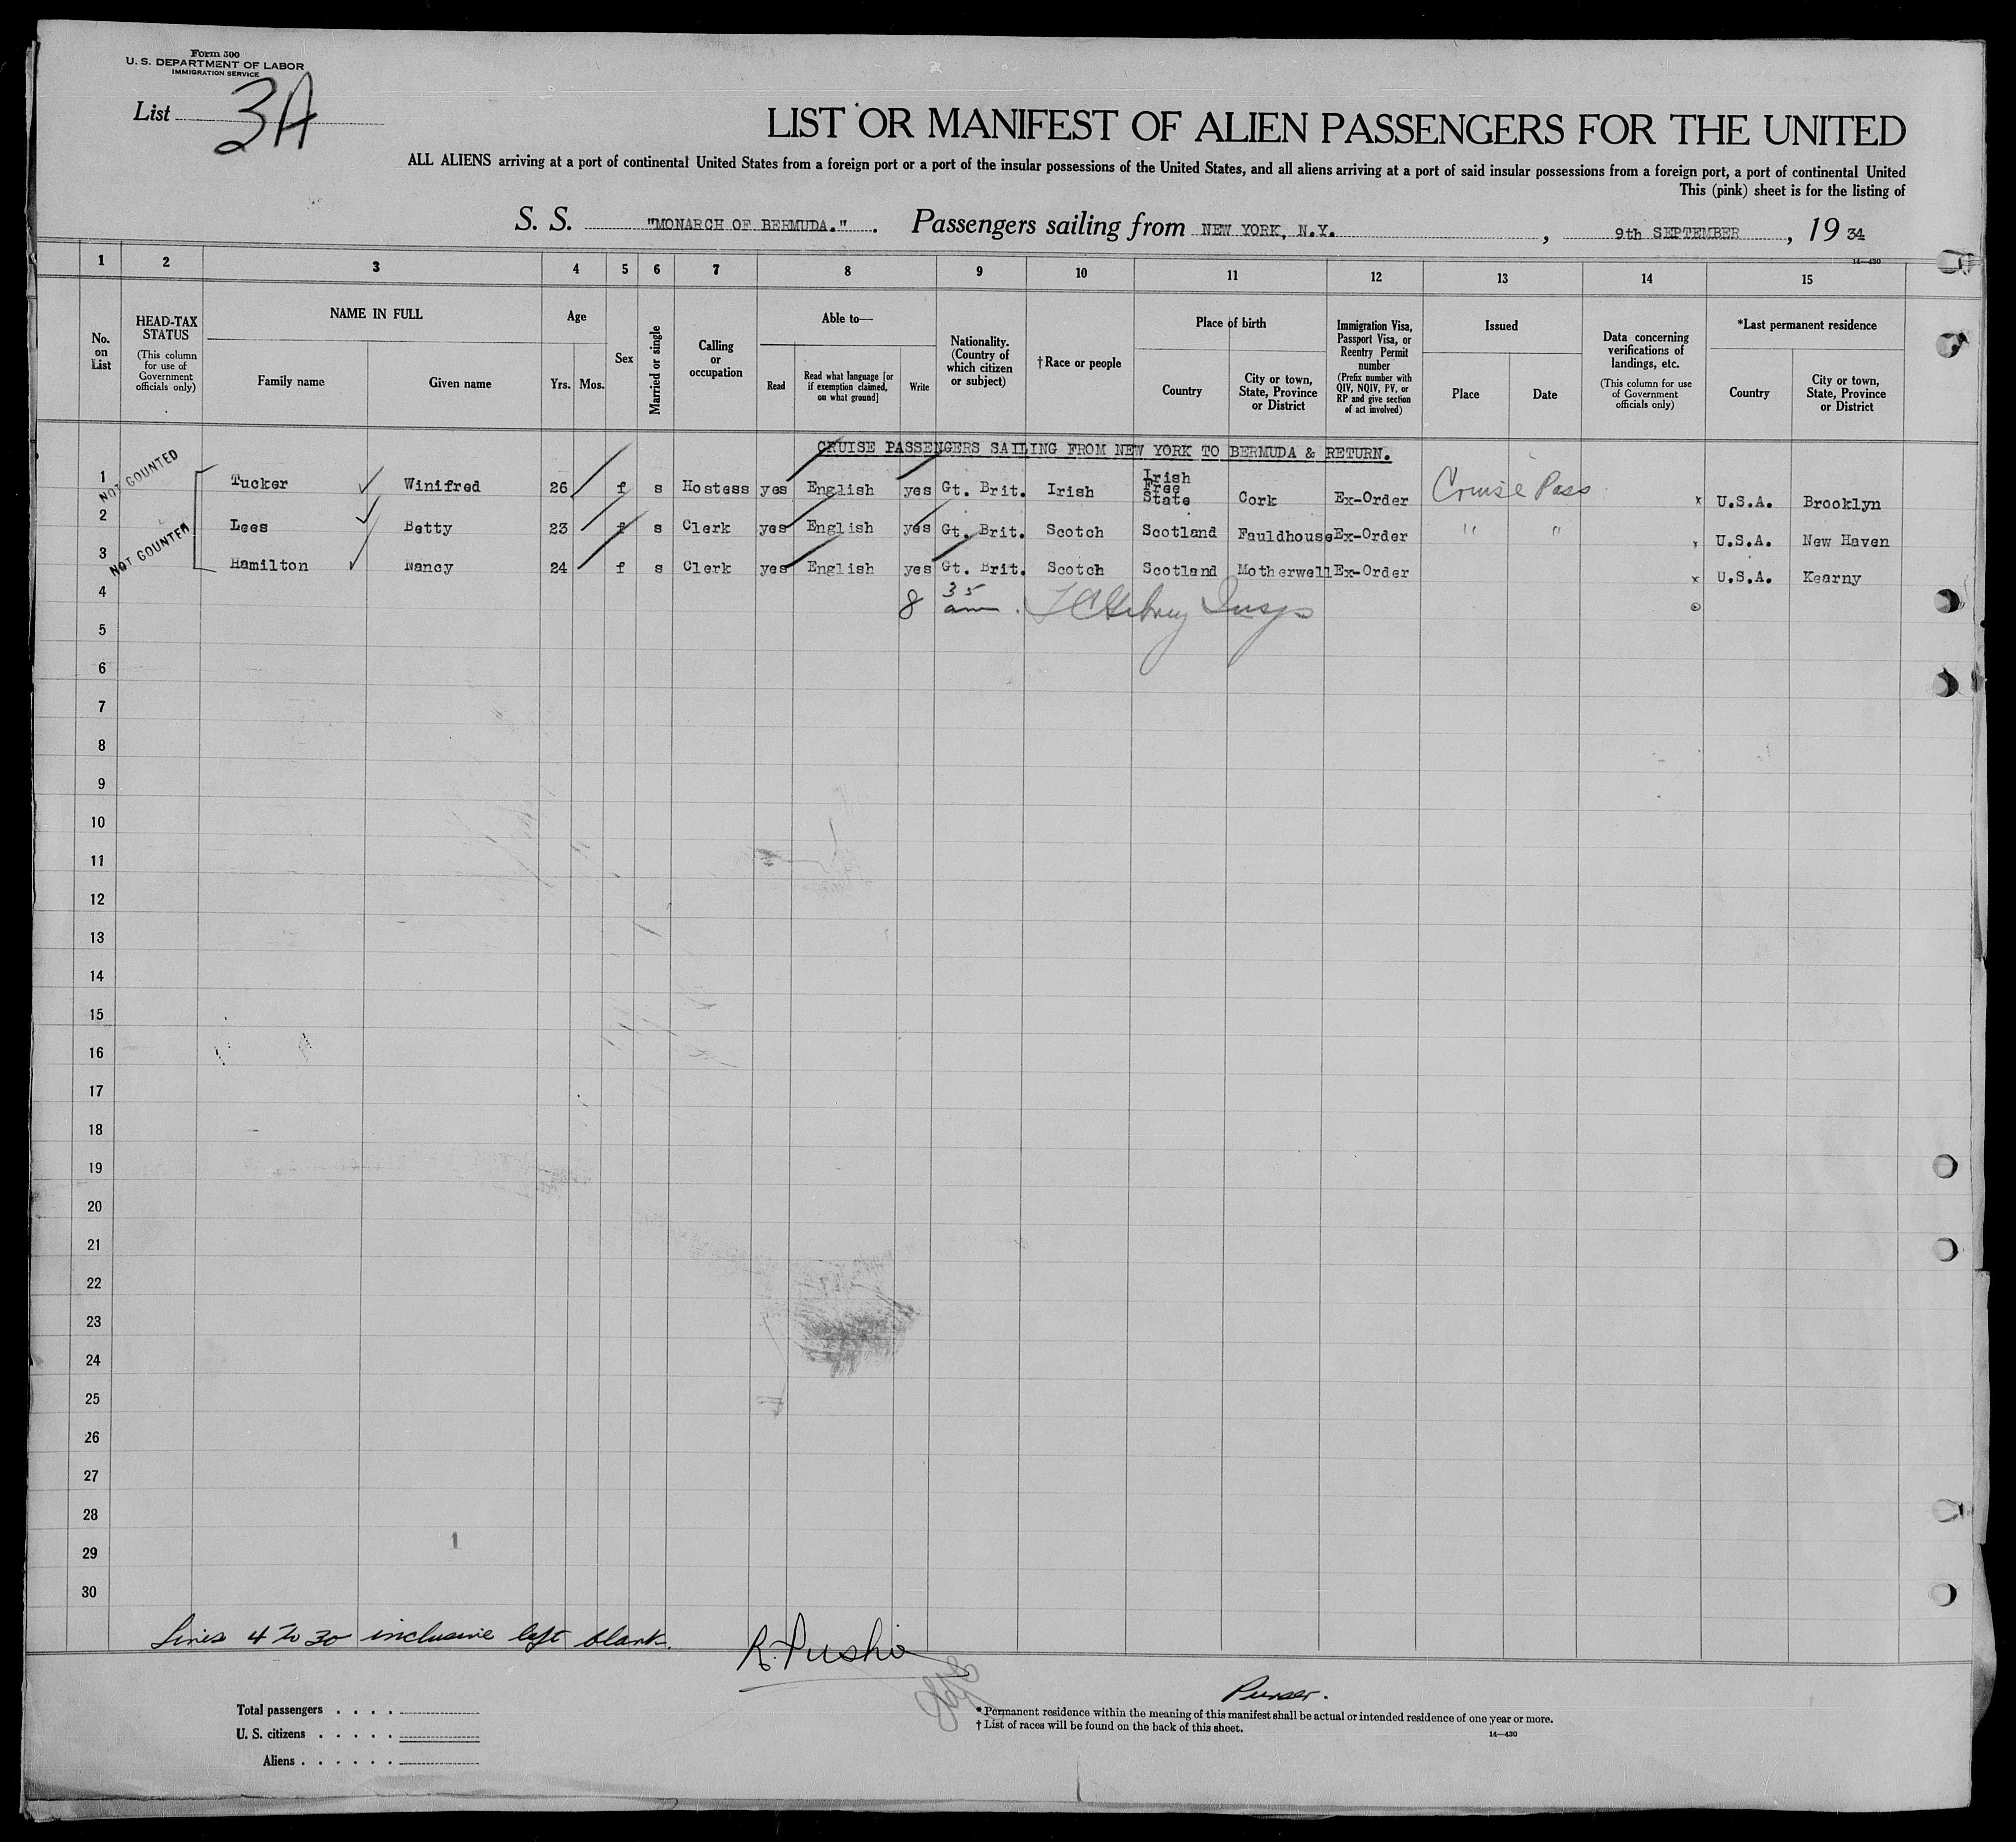 Form 500
U. S. DEPARTMENT OF LABOR
IMMIGRATION SERVICE
List 3A
LIST OR MANIFEST OF ALIEN PASSENGERS FOR THE UNITED
ALL ALIENS arriving at a port of continental United States from a foreign port or a port of the insular possessions of the United States, and all aliens arriving at a port of said insular possessions from a foreign port, a port of continental United
This (pink) sheet is for the listing of
S. S. "MONARCH OF BERMUDA." . Passengers sailing from NEW YORK, N.Y. , 9th SEPTEMBER , 19 34
14—430
1 2 3 4 5 6 7 8 9 10 11 12 13 14 15
No. on List
HEAD-TAX STATUS (This column for use of Government officials only)
NAME IN FULL
Family name Given name
Age
Yrs. Mos.
Sex
Married or single
Calling or occupation
Able to—
Read Read what language [or if exemption claimed, on what ground] Write
Nationality. (Country of which citizen or subject)
†Race or people
Place of birth
Country City or town, State, Province or District
Immigration Visa, Passport Visa, or Reentry Permit number (Prefix number with QIV, NQIV, PV, or RP and give section of act involved)
Issued
Place Date
Data concerning verifications of landings, etc. (This column for use of Government officials only)
*Last permanent residence
Country City or town, State, Province or District
CRUISE PASSENGERS SAILING FROM NEW YORK TO BERMUDA & RETURN.
NOT COUNTED
1 Tucker Winifred 26 f s Hostess yes English yes Gt. Brit. Irish Irish Free State Cork Ex-Order Cruise Pass x U.S.A. Brooklyn
2 Lees Betty 23 f s Clerk yes English yes Gt. Brit. Scotch Scotland Fauldhouse Ex-Order " " U.S.A. New Haven
NOT COUNTED
3 Hamilton Nancy 24 f s Clerk yes English yes Gt. Brit. Scotch Scotland Motherwell Ex-Order x U.S.A. Kearny
4 8 35 am . Insp
5
6
7
8
9
10
11
12
13
14
15
16
17
18
19
20
21
22
23
24
25
26
27
28
29
30
Lines 4 to 30 inclusive left blank.
Purser.
Total passengers . . . .
U. S. citizens . . . . .
Aliens . . . . . .
* Permanent residence within the meaning of this manifest shall be actual or intended residence of one year or more.
† List of races will be found on the back of this sheet.
14—430